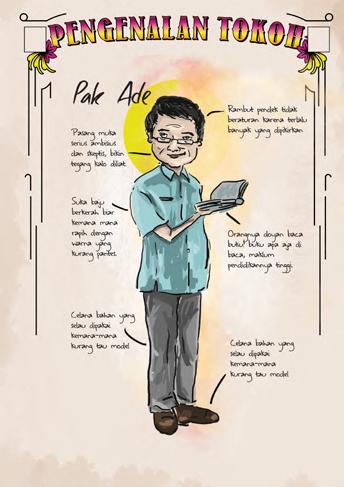 PENGENALAN TOKOH
Pak Ade
Rambut pendek tidak
beraturan karena terlalu
banyak yang dipikirkan
Pasang muka
serius ambisius
dan skeptis, bikin
tegang kalo dilihat
Suka baju
berkerah biar
kemana mana
rapih dengan
warna yang
kurang pantes.
Orangnya doyan baca
buku, buku apa aja di
baca, maklum
pendidikannya tinggi.
Celana bahan yang
selau dipakai
kemana-mana
kurang tau model
Celana bahan yang
selau dipakai
kemana-mana
kurang tau model